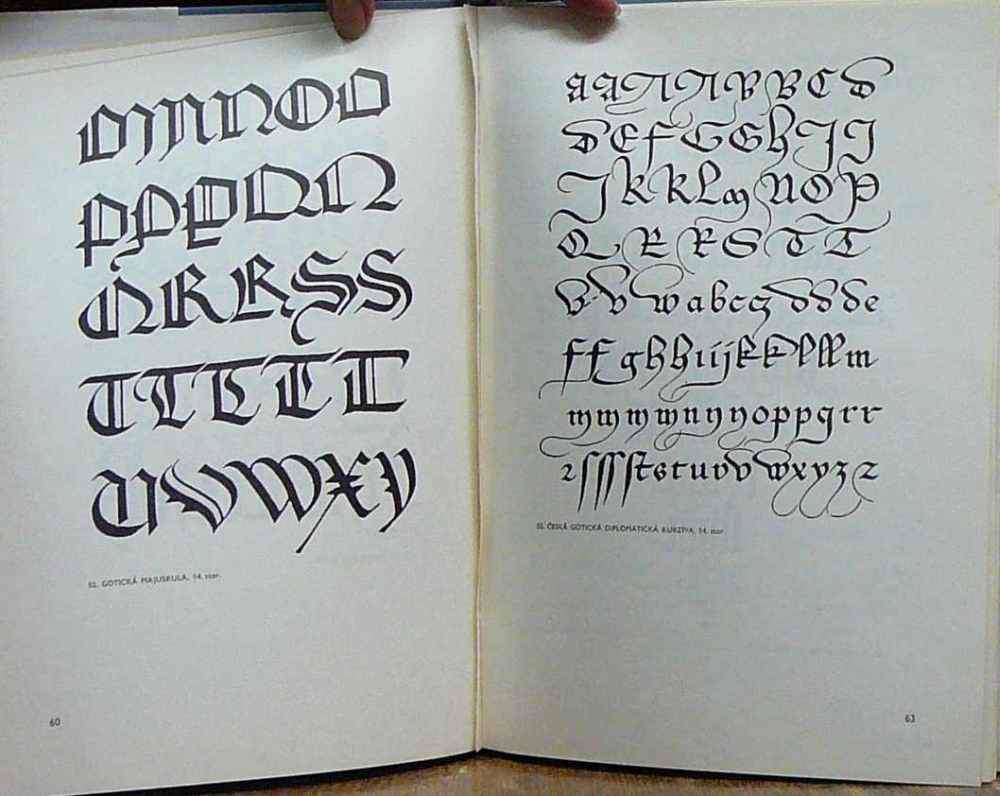 M N N O O
P P P Q Q
Q R R S S
T T T T T
U V W X Y
52. GOTICKÁ MAJUSKULA, 14. stor.
60
A A N N B B C D
D E F G G H J J
J K K L M N O P
Q R R S T T
V V W a b c ç d d d e
f f g h h i i j k k l ll m
m m m w n y y o p p q r r
2 ſ ſ ſ ſt s t u v v w x y z z
53. ČESKÁ GOTICKÁ DIPLOMATICKÁ KURZÍVA, 14. stor.
63